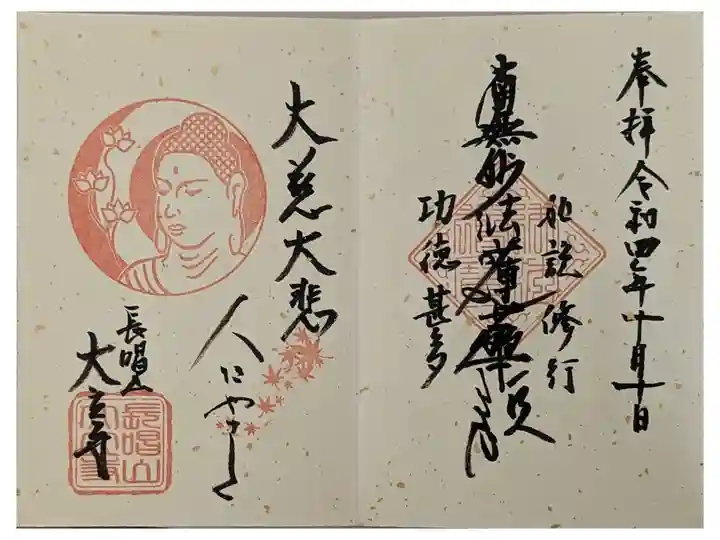 奉拝 令和四年十月十日
如説修行
南無妙法蓮華経
功徳甚多
大慈大悲
人にやさしく
長唱山
大立寺
長唱山